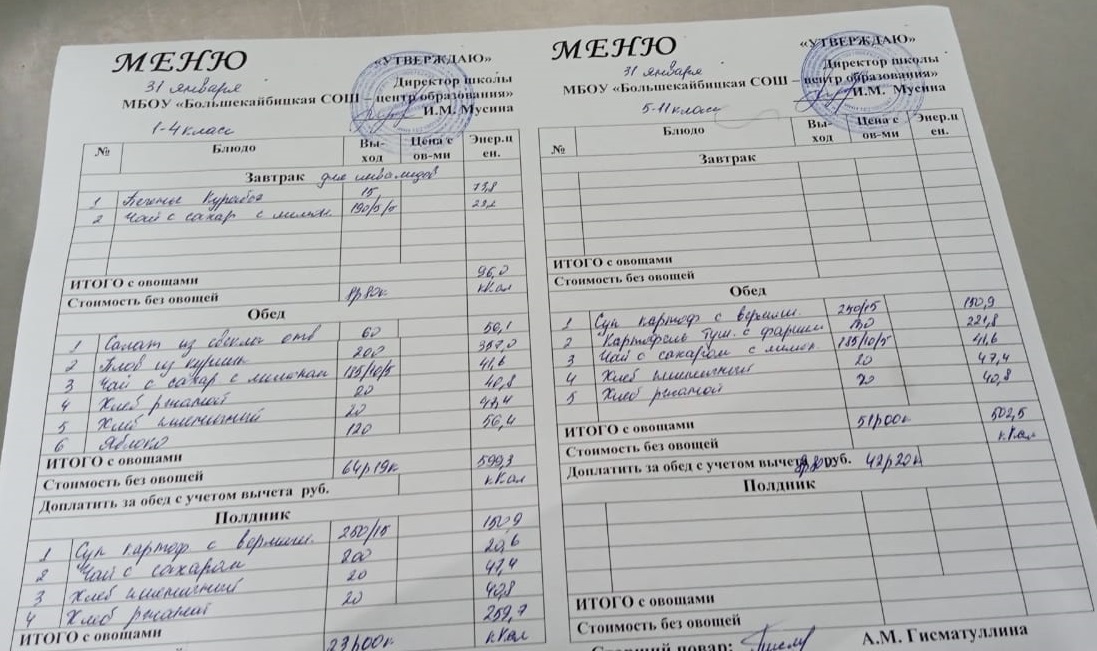 МЕНЮ
«УТВЕРЖДАЮ»
31 января
Директор школы
МБОУ «Большекайбицкая СОШ – центр образования»
И.М. Мусина
1-4 класс
№ Блюдо Вы-ход Цена с ов-ми Энер.ц ен.
Завтрак для инвалидов
1 Печенье Курабье 15 73,8
2 Чай с сахар с лимон. 190/5/5
ИТОГО с овощами 96,0
Стоимость без овощей 8р80к кКал
Обед
1 Салат из свеклы отв 60 56,1
2 Плов из курицы 200 357,0
3 Чай с сахар с лимоном 185/10/5 41,6
4 Хлеб ржаной 20 40,8
5 Хлеб пшеничный 20 47,4
6 Яблоко 120 56,4
ИТОГО с овощами 599,3
Стоимость без овощей 64р19к кКал
Доплатить за обед с учетом вычета руб.
Полдник
1 Суп картоф с вермиш. 250/15 150,9
2 Чай с сахаром 200 20,6
3 Хлеб пшеничный 20 47,4
4 Хлеб ржаной 20 40,8
ИТОГО с овощами 259,7
23р00к кКал
МЕНЮ
«УТВЕРЖДАЮ»
31 января
Директор школы
МБОУ «Большекайбицкая СОШ – центр образования»
И.М. Мусина
5-11 класс
№ Блюдо Вы-ход Цена с ов-ми Энер.ц ен.
Завтрак
ИТОГО с овощами
Стоимость без овощей
Обед
1 Суп картоф с вермиш. 250/15 150,9
2 Картофель туш. с фаршем 221,8
3 Чай с сахаром с лимон. 185/10/5 41,6
4 Хлеб пшеничный 20 47,4
5 Хлеб ржаной 20 40,8
ИТОГО с овощами 502,5
Стоимость без овощей 51р00к кКал
Доплатить за обед с учетом вычета руб. 42р20к
Полдник
ИТОГО с овощами
Стоимость без овощей
Старший повар: А.М. Гисматуллина